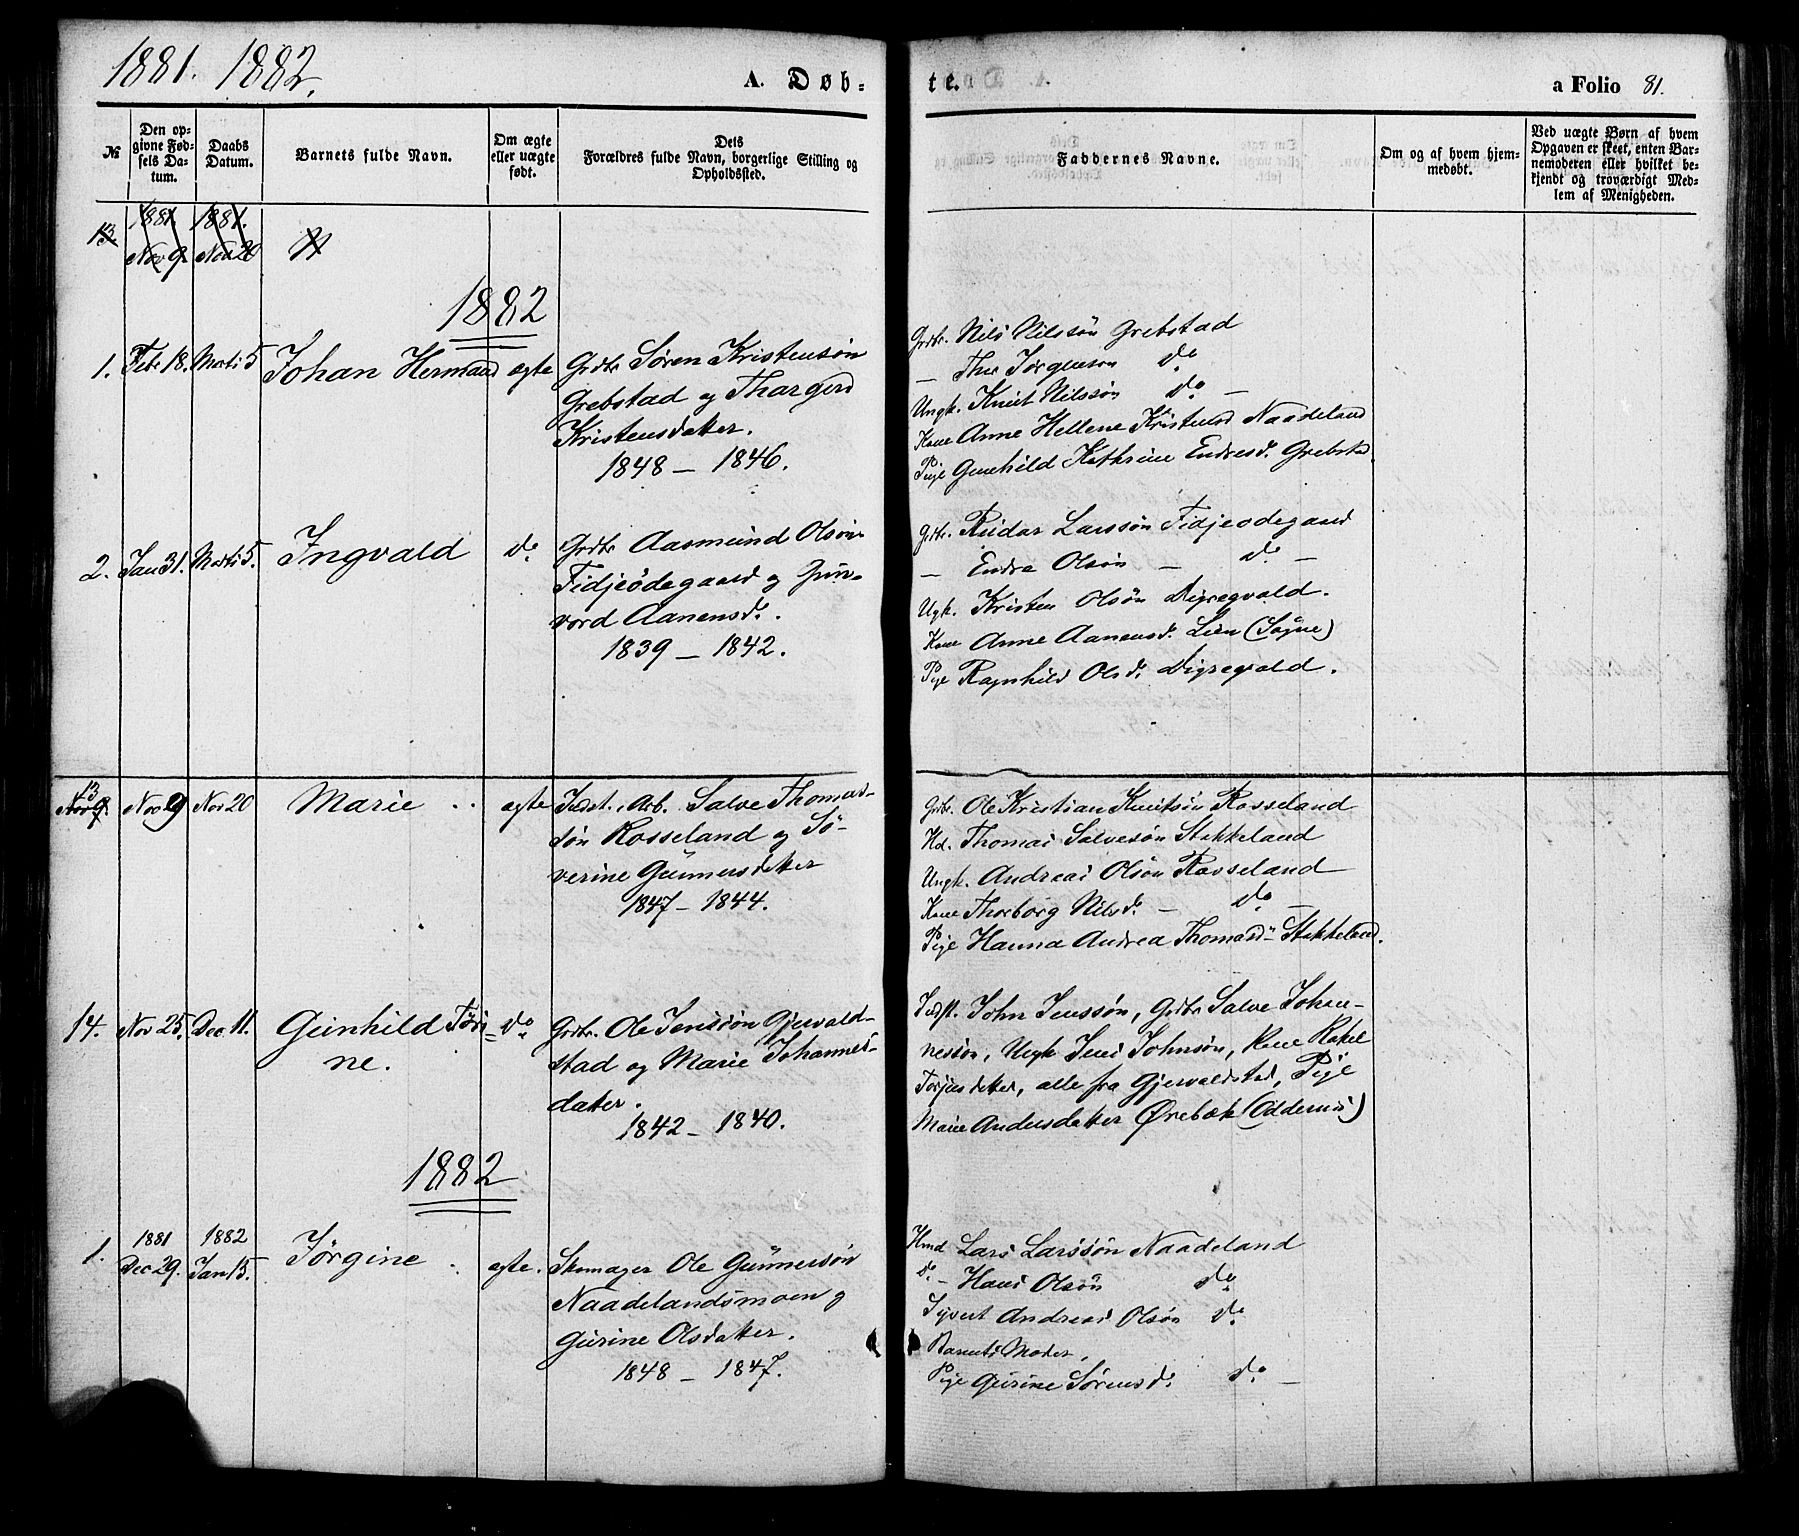 1881. 1882.
A. Døb=
te.
a Folio 81.
№
Den op=
givne Fød=
sels Da=
tum.
Daabs
Datum.
Barnets fulde Navn.
Om ægte
eller uægte
født.
Dets
Forældres fulde Navn, borgerlige Stilling og
Opholdssted.
Faddernes Navne.
Om og af hvem hjem=
medøbt.
Ved uægte Børn af hvem
Opgaven er skeet, enten Bar=
nemoderen eller hvilket be=
kjendt og troværdigt Med=
lem af Menigheden.
1881. 1881.
13. Nov 9. Nov 20
1882
1. Febr 18. Marts 5 Johan Hermaad ægte Grdbr Søren Kristensøn
Grebstad og Thargerd
Kristensdatter.
1848 – 1846.
Grdbr. Nils Nilssøn Grebstad
– Thor Jørgensen do
Ungk. Knut Nilssøn do –
Kone Anne Hellene Kristensd Naadeland
Pige Gunhild Kathrine Endresd. Grebstd.
2. Jan 31. Marts 5. Ingvald do Grdbr Aasmund Olsøn
Fidjeødegaard og Gun=
vord Aanensd.
1839 – 1842.
Grdbr. Reidar Larssøn Fidjeødegaard
– Endre Olsøn – do –
Ugk. Kristen Olsøn Digregvald.
Kone Anne Aanensd. Lien (Søgne)
Pige Ragnhild Olsd. Digregvald.
13
Nov 9. Nov 9 Nov 20 Marie ægte Indst. Arb. Salve Thomas=
søn Rosseland og Sø=
verine Gunnersdatter
1847 – 1844.
Grdbr. Ole Kristian Knutsøn Rosseland
Hd. Thomas Salvesøn Stakkeland
Ungk. Andreas Olsøn Rosseland
Kone Thorborg Nilsd. – do –
Pige Hanna Andrea Thomasd Stakkeland.
14. Nov 25. Dec 11. Gunhild Tøri= do Grdbr. Ole Jenssøn Gjervald=
ne. stad og Marie Johannes=
dater.
1842 – 1840.
Indst. John Jenssøn, Grdbr Salve Johan=
nessøn, Ungk Jens Johnsøn, Kone Rakel
Torjusdatter, alle fra Gjervaldstad, Pige
Marie Andersdatter Ørebæk (Oddernes)
1882
1881 1882
1. Dec 29. Jan 15. Jørgine ægte. Skomager Ole Gunnersøn
Naadelandsmoen og
Gurine Olsdatter.
1848 – 1847.
Hmd Lars Larssøn Naadeland
do – Hans Olsøn do
Syvert Andreas Olsøn do
Barnets Moder,
Pige Gurine Sørensd. do –